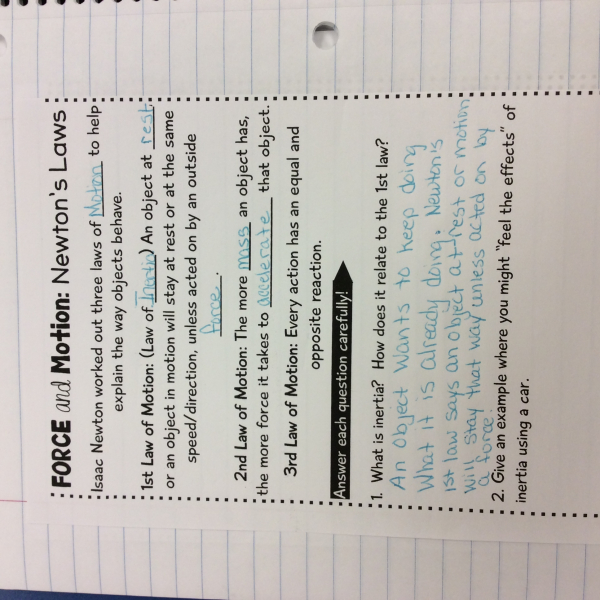 FORCE and Motion: Newton's Laws
Isaac Newton worked out three laws of Motion to help
explain the way objects behave.
1st Law of Motion: (Law of Inertia) An object at rest
or an object in motion will stay at rest or at the same
speed/direction, unless acted on by an outside
force.
2nd Law of Motion: The more mass an object has,
the more force it takes to accelerate that object.
3rd Law of Motion: Every action has an equal and
opposite reaction.
Answer each question carefully!
1. What is inertia? How does it relate to the 1st law?
An object wants to keep doing
what it is already doing. Newton's
1st law says an object at rest or motion
will stay that way unless acted on by
a force.
2. Give an example where you might "feel the effects" of
inertia using a car.